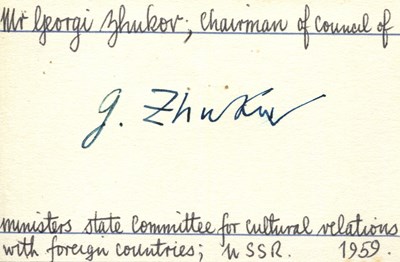 Mr Georgi Zhukov; Chairman of council of
G. Zhukov
ministers state committee for cultural relations
with foreign countries; USSR. 1959.